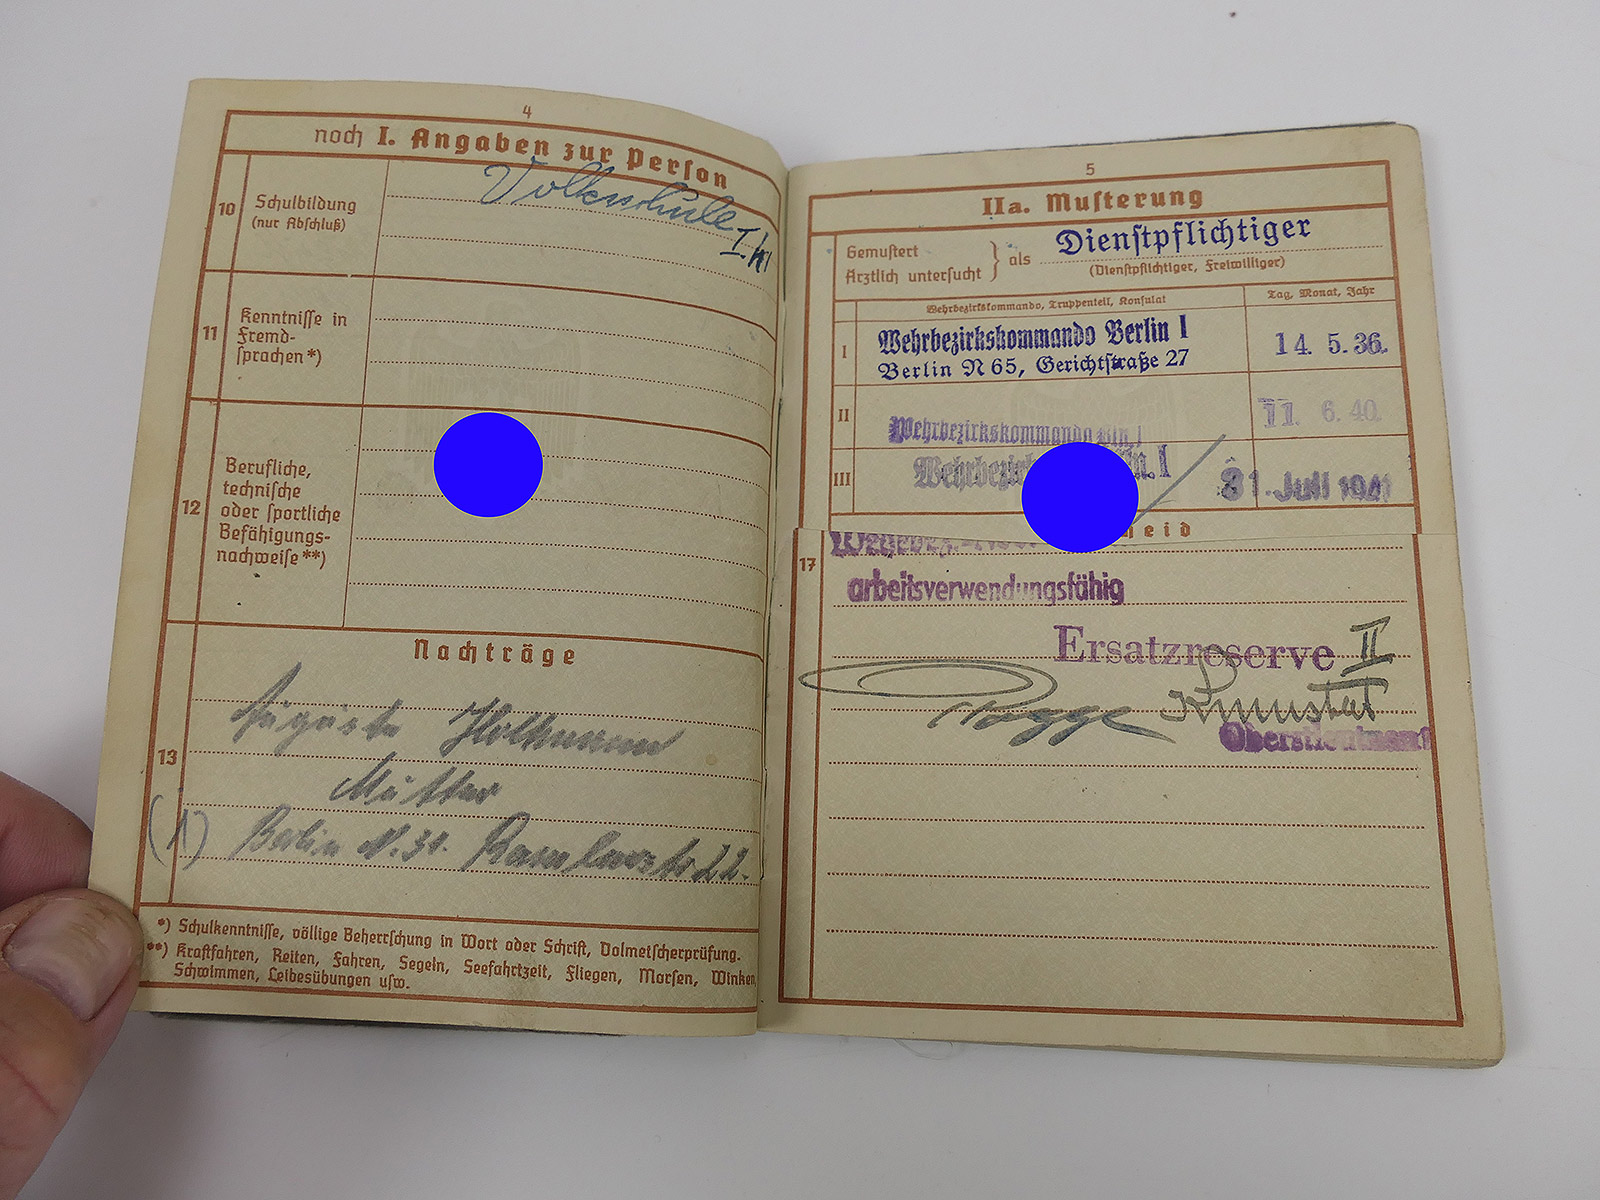 4
noch I. Angaben zur Person
10
Schulbildung
(nur Abschluß)
Volksschule
I. Kl
11
Kenntnisse in
Fremd-
sprachen*)
12
Berufliche,
technische
oder sportliche
Befähigungs-
nachweise**)
Nachträge
13
Auguste Holtmann
Mutter
(1) Berlin N. 31.
22.
*) Schulkenntnisse, völlige Beherrschung in Wort oder Schrift, Dolmetscherprüfung.
**) Kraftfahren, Reiten, Fahren, Segeln, Seefahrtzeit, Fliegen, Morsen, Winken,
Schwimmen, Leibesübungen usw.
5
IIa. Musterung
Gemustert
Ärztlich untersucht } als
Dienstpflichtiger
(Dienstpflichtiger, Freiwilliger)
Wehrbezirkskommando, Truppenteil, Konsulat
Tag, Monat, Jahr
I
Wehrbezirkskommando Berlin I
Berlin N 65, Gerichtstraße 27
14. 5. 36.
II
Wehrbezirkskommando Bln. I
11. 6. 40.
III
Bln. I
31. Juli 1941
17
arbeitsverwendungsfähig
Ersatzreserve II
Oberstleutnant